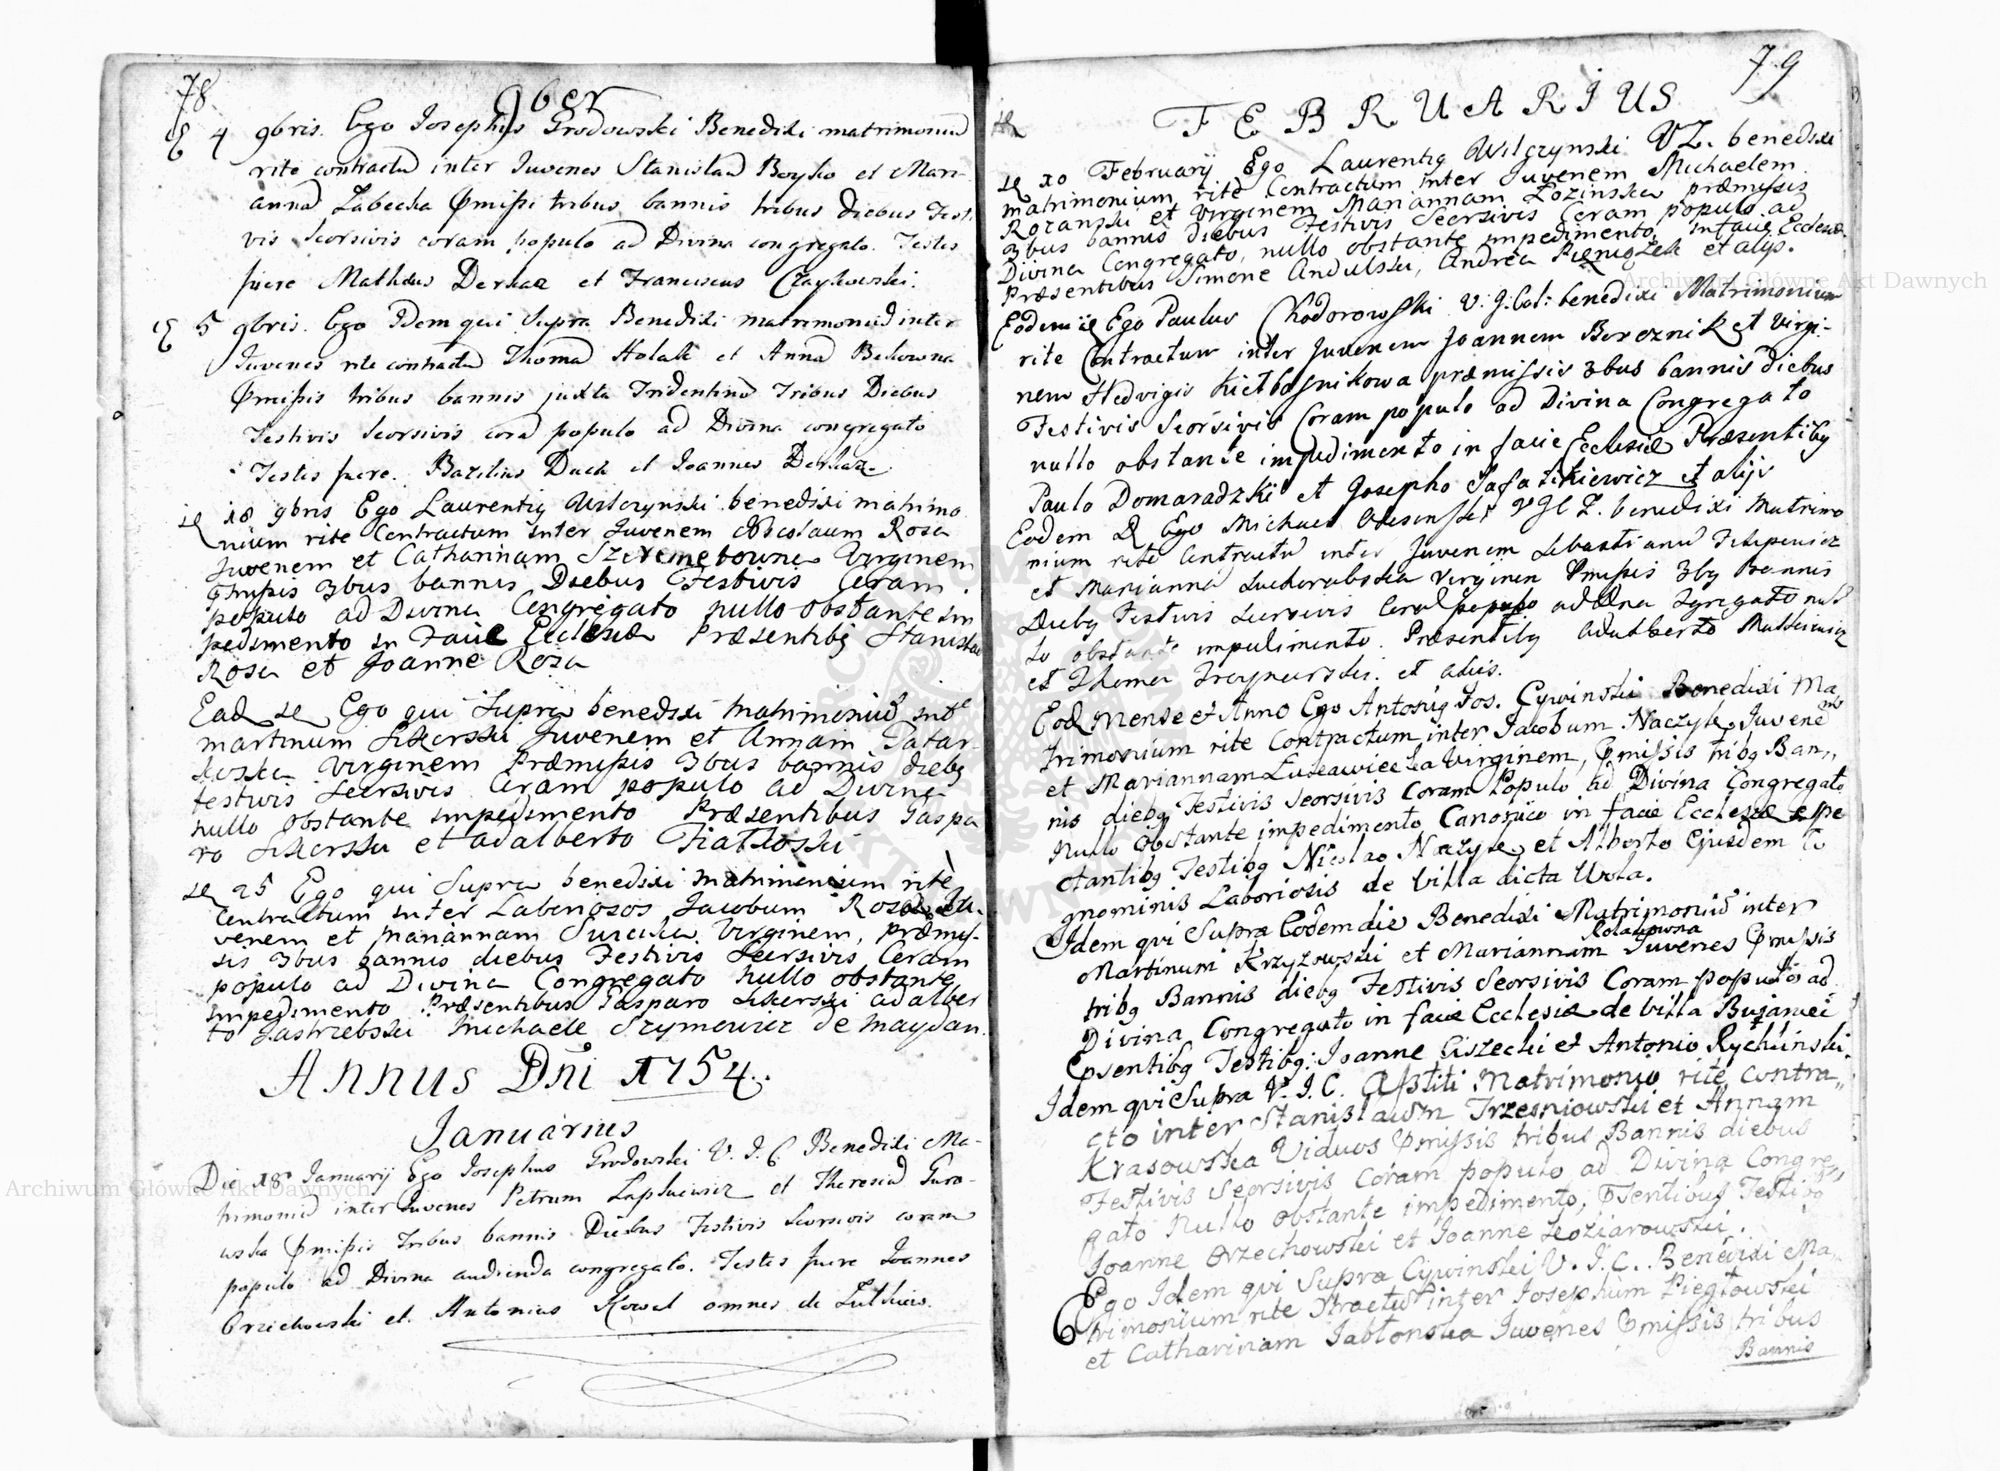 78
9ber
4 9bris. Ego Josephus Grodowski Benedixi matrimoniu
rite contractu inter Juvenes Stanislau Boyko et Mari-
anna Zabecka pmissi tribus bannis tribus diebus Festi
vis seorsivis coram populo ad Divina congregato. Testes
fuere Mathaeus Derkaz et Franciscus Czaykowski.
5 9bris. Ego Idem qui Supra Benedixi matrimoniu inter
Juvenes rite contractu Thoma Holak et Anna
Pmissis tribus bannis juxta Tridentinu Tribus Diebus
Festivis seorsivis cora populo ad Divina congregato
Testes fuere. Bazilius Duda et Joannes Derkaz
18 9bris Ego Laurentig Wilczynski benedixi matrimo
nium rite Contractum inter Juvenem Nicolaum Rosa
Juvenem et Catharinam Virginem
pmissis 3bus bannis Diebus Festivis Coram
populo ad Divina Congregato nullo obstante im
pedimento in Facie Ecclesiæ Præsentibg Stanislao
Rosa et Joanne Roza
Ead Ego qui Supra benedixi matrimoniu int
martinum Sikorski Juvenem et Annam Tatar-
Virginem Præmissis 3bus bannis diebg
festivis Seorsivis Coram populo ad Divina
nullo obstante impedimento Præsentibus Gaspa
ro Sikorski et adalberto
25 Ego qui Supra benedixi matrimonium rite
Contractum inter Laboriosos Jacobum Rosa Ju-
venem et mariannam Virginem, Præmis-
sis 3bus bannis diebus Festivis Seorsivis Coram
populo ad Divina Congregato nullo obstante
impedimento Præsentibus Gasparo Sikorski adalber
to Jastrzebski michaele Szymowicz de maydan.
Annus Dni 1754.
Januarius
Die 18 Januarij Ego Josephus Grodowski V. I. C Benedixi Ma-
trimoniu inter Juvenes Petrum Lapkiewicz et Theresia Guro-
wska pmissis tribus bannis Diebus Festivis seorsivis coram
populo ad Divina audienda congregato. Testes fuere Joannes
Orzechowski et Antonius Kowal omnes de
79
FEBRUARIUS
10 Februarij Ego Laurentig Wilczynski VZ. benedixi
matrimonium ritè Contractum inter Juvenem Michaelem
Rozanski et Virginem Mariannam Lozinska præmissis
3bus bannis diebus Festivis Seorsivis Coram populo ad
Divina Congregato, nullo obstante impedimento in facie Ecclesiæ
Præsentibus Simone Andulski, Andrea et alys.
Eodem Ego Paulus Chodorowski V: benedixi Matrimonium
rite Contractum inter Juvenem Joannem Bereznik et Virgi-
nem Hedvigis Kiełbaśnikowa præmissis 3bus bannis diebus
Festivis Seorsivis Coram populo ad Divina Congregato
nullo obstante impedimento in facie Ecclesiæ Præsentibg
Paulo Domaradzki et Josepho et alijs
Eodem Ego Michael benedixi Matrimo
nium rite Contractu inter Juvenem Sebastianu
et Marianna Virginem Pmissis 3bg Bannis
Diebg Festivis Seorsivis Cora populo ad nul
lo obstante impedimento. Præsentibg Adalberto
et Thoma et aliis.
Eod Mense et Anno Ego Antonig Jos. Cywinski Benedixi Ma,,
trimonium rite Contractum inter Jacobum Naczyk Juvene
et Mariannam Virginem, pmissis tribg Ban,,
nis diebg Festivis Seorsivis Coram Populo ad Divina Congregato
Nullo Obstante impedimento Canonico in facie Ecclesiæ Spe
ctantibg Testibg Nicolao Naczyk et Alberto Ejusdem Co
gnominis Laboriosis de Villa dicta Wola.
Idem qvi Supra Eodem die Benedixi Matrimoniu inter
Martinum Krzyzowski et Mariannam Juvenes Pmissis
tribg Bannis diebg Festivis Seorsivis Coram populo ad
Divina Congregato in facie Ecclesiæ de villa
Psentibg Testibg: Joanne Ciszecki et Antonio Rychlinski
Idem qvi Supra V. I. C. Astiti Matrimonio rite contra,,
cto inter Stanislaum Trzesniowski et Annam
Krasowska Viduos Pmissis tribus Bannis diebus
Festivis Seorsivis Coram populo ad Divina Congre,,
gato Nullo obstante impedimento, Psentibus Testibg
Joanne Orzechowski et Joanne Koziarowski.
Ego Idem qvi Supra Cywinski V. I. C. Benedixi Ma,,
trimonium rite inter Josephum Piegłowski
et Catharinam Jabłonska Juvenes Pmissis tribus
Bannis
Archiwum Główne Akt Dawnych
Archiwum Główne Akt Dawnych